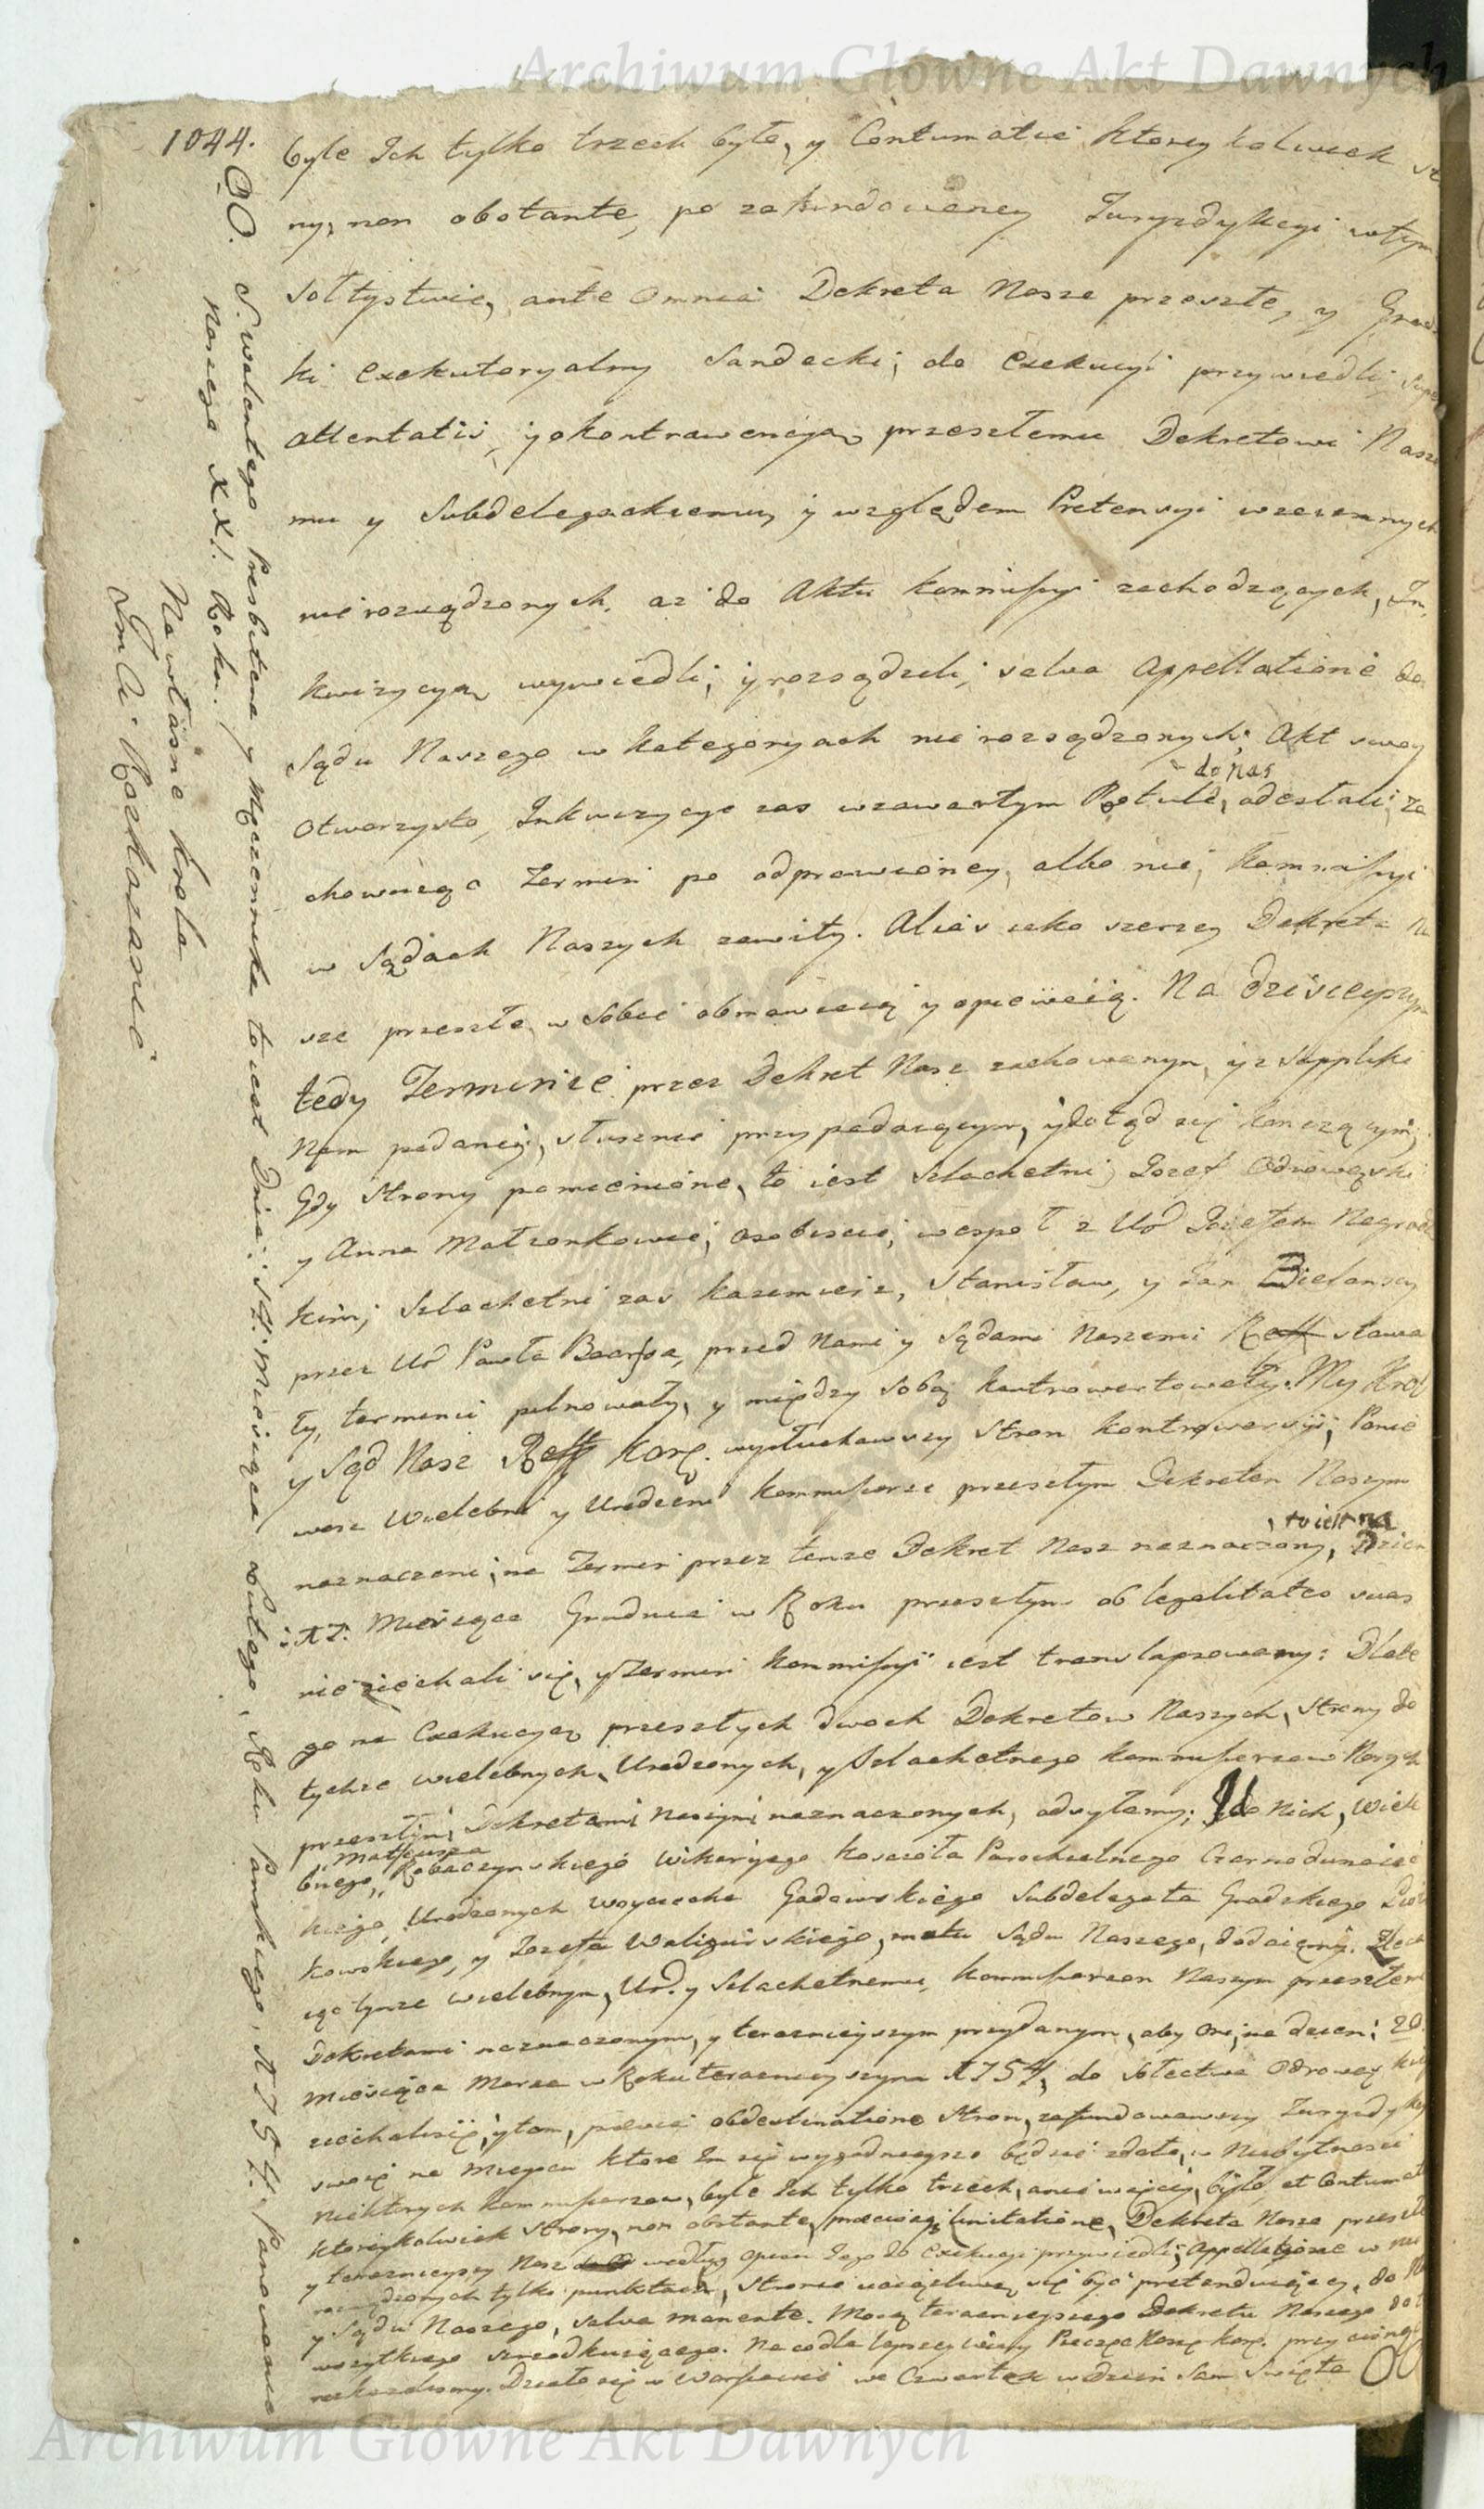 Archiwum Główne Akt Dawnych
1044.
byle Ich tylko trzech było, y Contumatie ktorey kolwiek
ny, non obstante, po zafundowaney Juryzdykcyi wtym
Sołtystwie, ante omnia Dekreta Nasze przeszłe, y Grodz
ki exekutoryalny Sandecki, do Exekucyi przywiedli, super
attentatis, y okontrawencyą przeszłemu Dekretowi Nasze
mu y Subdelegackiemu, y względem Pretensyi wzaiemnych
nierozsądzonych, az do Aktu kommissyi zachodzących, In
kwizycyą wywiedli, y rozsądzili, salva Appellatione do
Sądu Naszego w kategoryach nierozsądzonych; Akt swoy
do Nas
otworzysto, Inkwizycye zas wzawartym Rotule, odesłali, Za
chowuiąc Termin po odprawioney, albo nie, kommissyi
w Sądach Naszych zawity. Alias iako szerzey Dekreta Na
sze przeszłe w sobie obmawiaią y opiewaią. Na dzisieyszym
tedy Terminie przez Dekret Nasz zachowanym, y z Suppliki
Nam podaney, słusznie przypadaiącym, y dotąd się konczącym;
Gdy Strony pomienione, to iest Szlachetni Jozef Odrowązski
y Anna Małzonkowie, osobiscie, wespoł z Ur Jozefem Nagrodz
kim; Szlachetni zas kazimierz, Stanisław, y Jan Bielanscy
przez Ur Pawła Baarsa, przed Nami y Sądami Naszemi Reff stawa
ły, terminu pilnowały, y między sobą kontrowertowały. My Krol
y Sąd Nasz Reff kor. wysłuchawszy Stron kontrowersyi; Ponie
wasz Wielebni y Urodzeni kommissarze przeszłym Dekretem Naszym
to iest na
naznaczeni, na Termin przez tenze Dekret Nasz naznaczony, Dzien
17. Miesiąca Grudnia w Roku przeszłym ob legalitates suas
nieziechali się, y Termin kommissyi iest translapsowany: Dlate
go na Exekucyą przeszłych dwoch Dekretow Naszych, Strony do
tychze wielebnych, Urodzonych, y Szlachetnego kommissarzow Naszych
przeszłymi Dekretami Naszymi naznaczonych, odsyłamy; Do Nich, Wiele
Matheusza
bnego, Robaczynskiego Wikaryego kosciola Parochialnego Czarnodunaiec
kiego, Urodzonych Woyciecha Gadowskiego Subdelegata Grodzkiego
kowskiego, y Jozefa Waligurskiego, motu Sądu Naszego, dodaiemy. Zleca
iąc tymze wielebnym, Ur. y Szlachetnemu, kommissarzom Naszym przeszłemi
Dekretami naznaczonym, y teraznieyszym przydanym, aby oni, na dzien 20.
Miesiąca Marca w Roku teraznieyszym 1754, do Sołectwa Odrowąz
ziechali się, y tam, praevia obdestinatione Stron, zafundowawszy Juryzdykcyą
swoię na Mieyscu ktore Im się wygodnieysze będzie zdało, w Niebytnosci
niektorych kommissarzow, byle Ich tylko trzech, ani więcey, było, et Contumatia
ktoreykolwiek Strony, non obstante, praecisaq limitatione, Dekreta Nasze przeszłe
y teraznieyszy Nasz według opisu Jego do Exekucyi przywiedli; Appellatione w nie
rozsądzonych tylko punktach, Stronie uciązliwą się być pretenduiącey, do Nas
y Sądu Naszego, salva manente. Mocą teraznieyszego Dekretu Naszego
wszytkiego szrodkuiącego. Na co dla lepszey wiary Pieczęć Naszę kor. przycisnąć
rozkazalismy. Działo się w Warszawie we Czwartek w dzien Sam Swięta
S. Walentego Presbitera y Męczennika to iest Dnia 14. Miesiąca Lutego, Roku Panskiego, 1754. Panowania
Naszego XXI. Roku.
Na własne krola
Jm ci Rozkazanie
Archiwum Główne Akt Dawnych